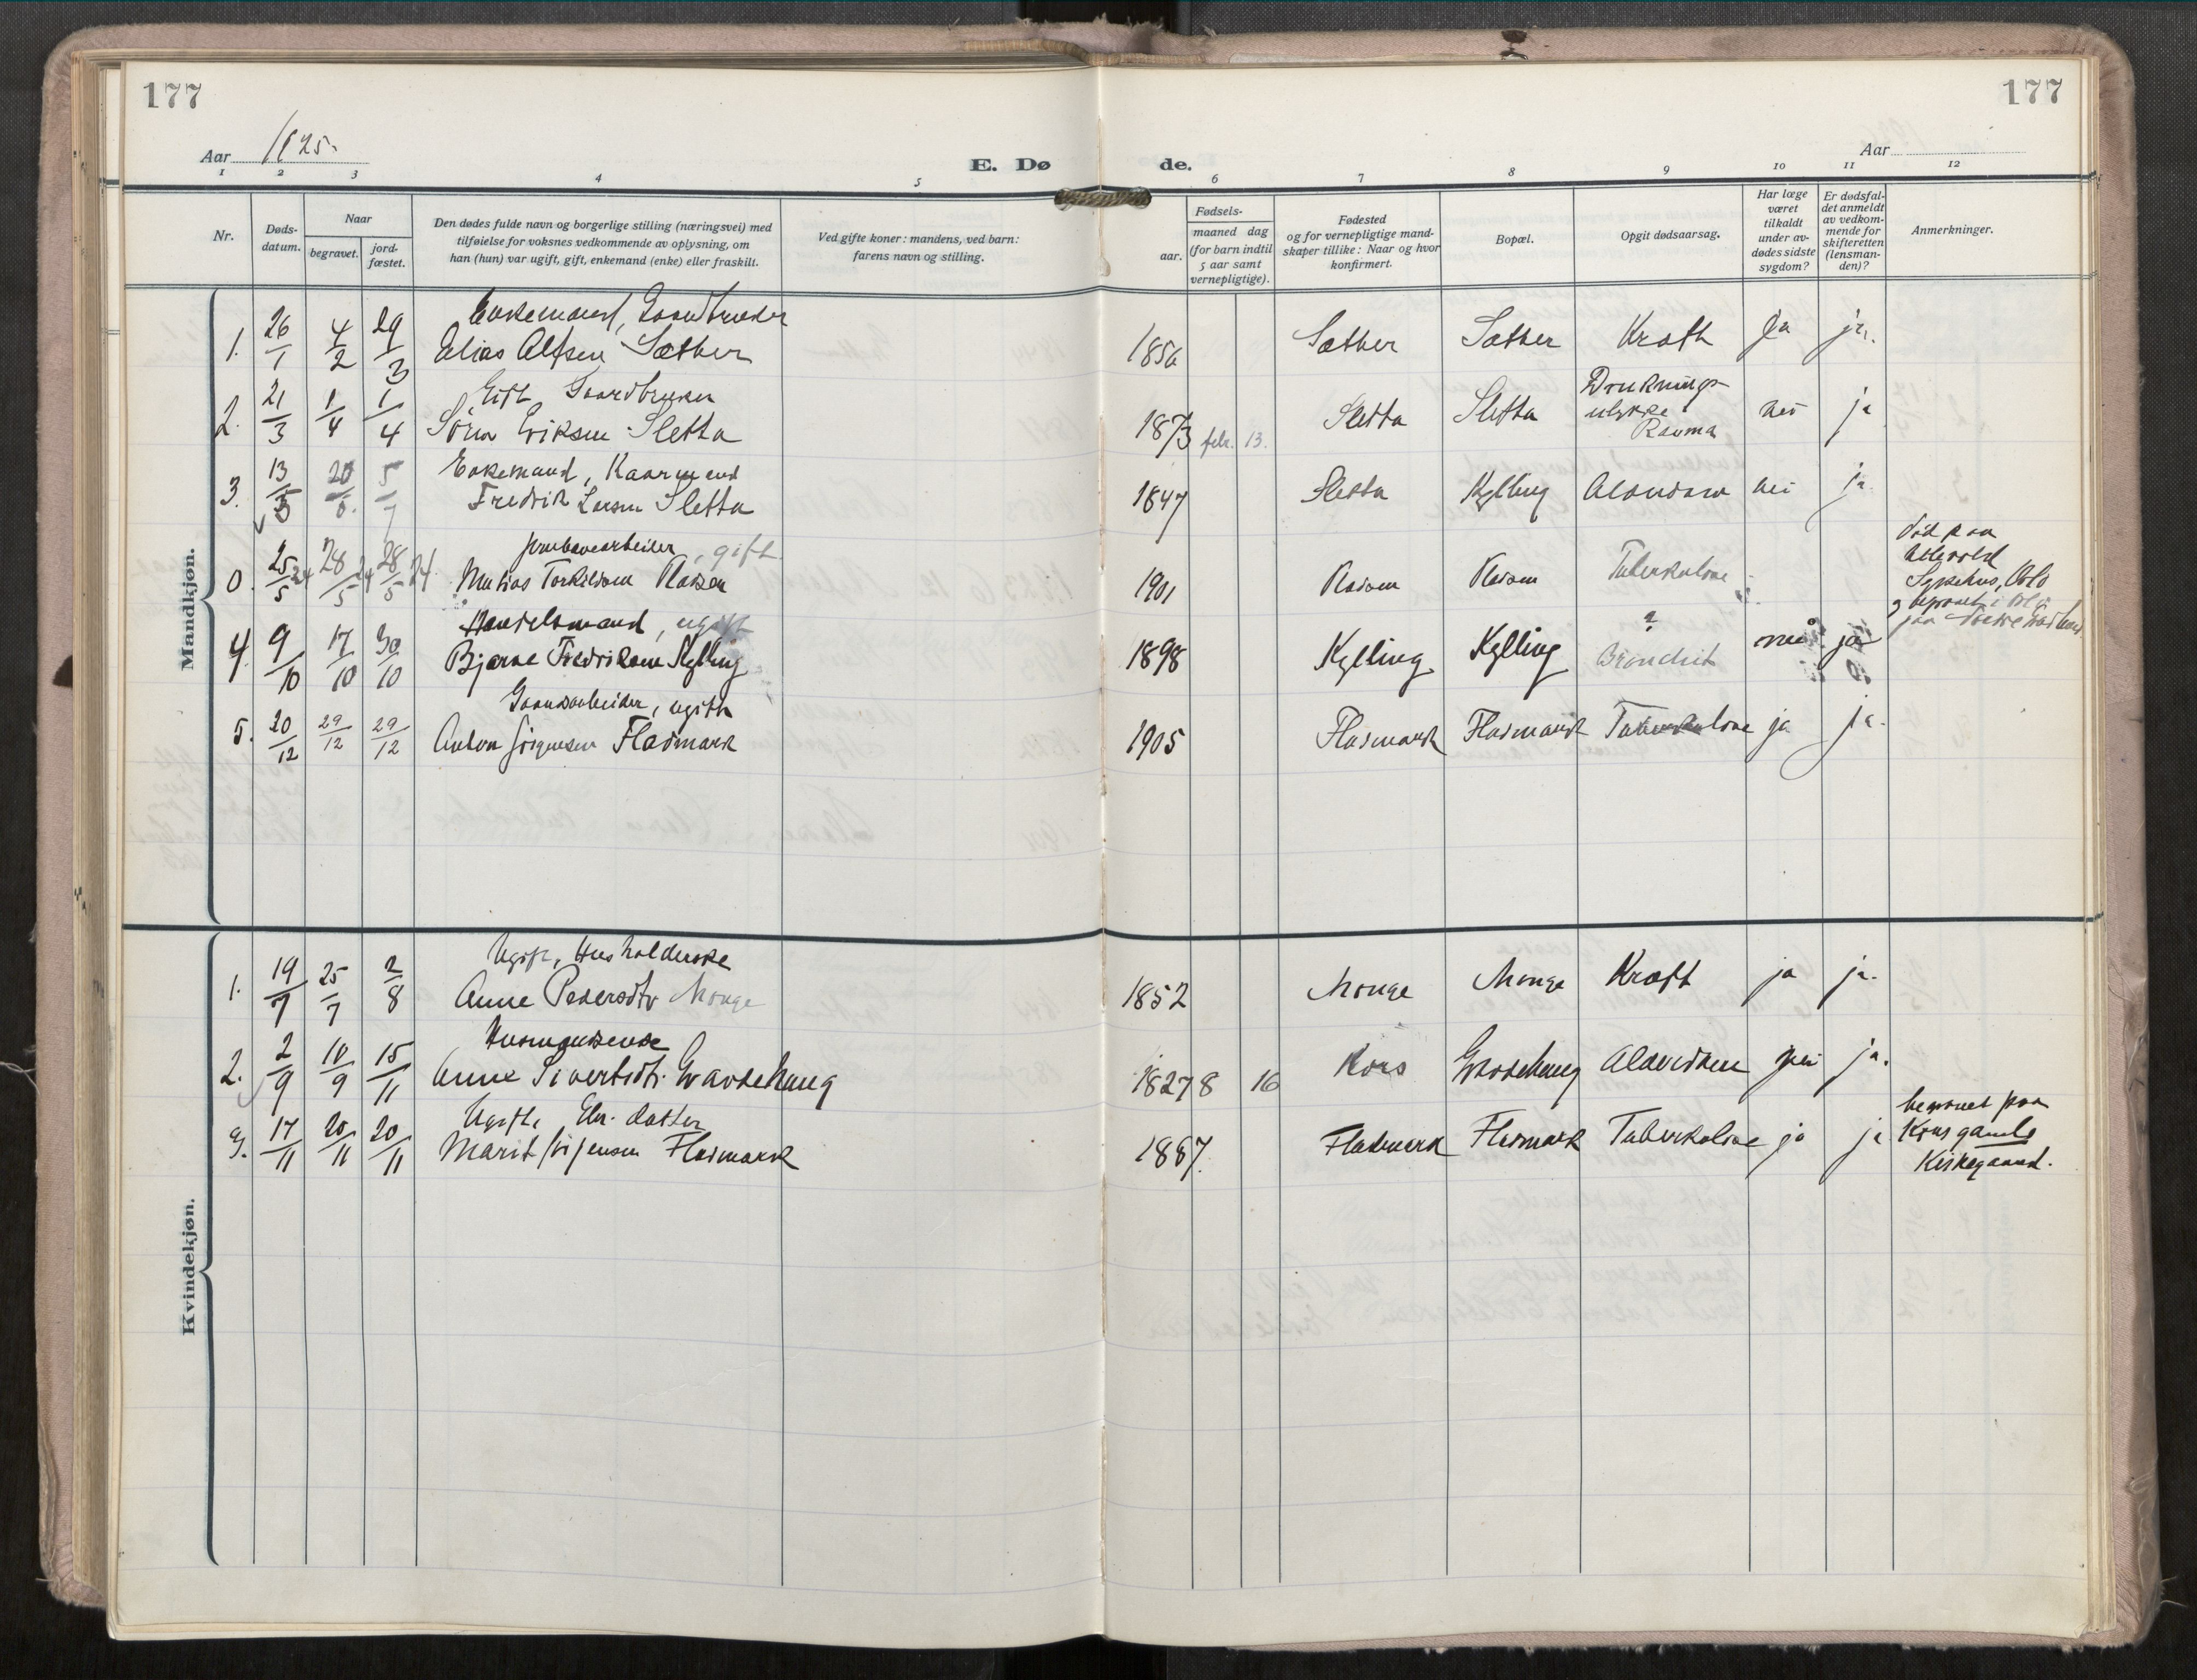 177
177
Aar 1925.
E. Døde.
Aar
1 2 3 4 5 6 7 8 9 10 11 12
Nr.
Døds-
datum.
Naar
begravet.
jord-
fæstet.
Den dødes fulde navn og borgerlige stilling (næringsvei) med
tilføielse for voksnes vedkommende av oplysning, om
han (hun) var ugift, gift, enkemand (enke) eller fraskilt.
Ved gifte koner: mandens, ved barn:
farens navn og stilling.
Fødsels-
aar.
maaned dag
(for barn indtil
5 aar samt
vernepligtige).
Fødested
og for vernepligtige mand-
skaper tillike: Naar og hvor
konfirmert.
Bopæl.
Opgit dødsaarsag.
Har læge
været
tilkaldt
under av-
dødes sidste
sygdom?
Er dødsfal-
det anmeldt
av vedkom-
mende for
skifteretten
(lensman-
den)?
Anmerkninger.
Mandkjøn.
Enkemand, Gaardbruker
1. 26/1 4/2 29/3 Elias Alfsen Sæther 1856 Sæther Sæther Kræft Ja ja.
Gift Gaardbruker
2. 21/3 1/4 1/4 Søren Eriksen Sletta 1873 febr. 13. Sletta Sletta Druknings-
ulykke i
Rauma nei ja
Enkemand, Kaarmand
3. 13/5 20/6. 5/7 Fredrik Larsen Sletta 1847 Sletta Kylling Alderdom nei ja.
, gift
0. 25/5 24 28/5 24 28/5 24. Matias Torkildsen 1901 Tuberkulose
Død paa
Sykehus, Oslo
begravet i Oslo
paa
Handelsmand, ugift
4. 9/10 17/10 30/10 Bjarne Fredriksen Kylling 1898 Kylling Kylling ?
Bronchit nei ja
Gaardsarbeider, ugift
5. 20/12 29/12 29/12 Anton Jørgensen Fladmark 1905 Fladmark Fladmark Tuberkulose ja ja.
Kvindekjøn.
Ugift, Husholderske
1. 19/7 25/7 2/8 Anne Pedersdtr Monge 1852 Monge Monge Kræft ja ja.
Husmandsenke
2. 2/9 10/9 15/11 Anne Sivertsdt. Gravdehaug 1827 8 16 Kors Gravdehaug Alderdom nei ja.
Ugift, datter
3. 17/11 20/11 20/11 Marit Jørgensen Fladmark 1887. Fladmark Fladmark Tuberkulose ja ja
begravet paa
Kors gamle
Kirkegaard.